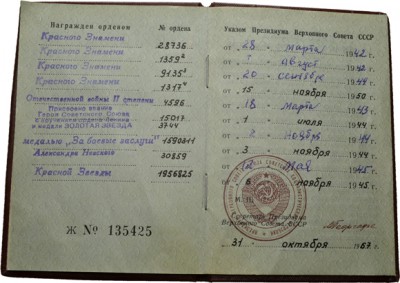 Награжден орденом № ордена
Красного Знамени 28736
Красного Знамени 1359²
Красного Знамени 9135³
Красного Знамени 1317⁴
Отечественной войны II степени 4596
Присвоено звание
Героя Советского Союза
с вручением ордена Ленина 15017
и медали ЗОЛОТАЯ ЗВЕЗДА 3744
медалью „За боевые заслуги"
Александра Невского 30859
Красной Звезды 1956825
Ж № 135425
Указом Президиума Верховного Совета СССР
от 28 марта 1942 г.
от августа 1942 г.
от 20 сентября г.
от 15 ноября 1950 г.
от 18 марта 1943 г.
от 1 июля 1944 г.
от ноября 1944 г.
от 3 ноября 1944 г.
от мая 1945 г.
ноября 1945 г.
М. П.
Секретарь Президиума
Верховного Совета СССР
31 октября 1967 г.